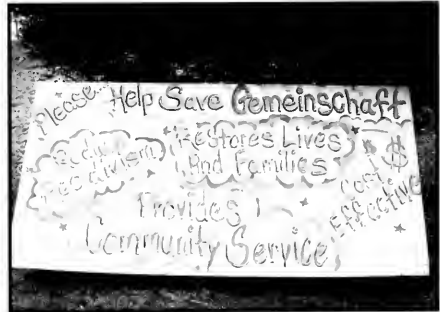 Please... Help Save Gemeinschaft
Restores Lives
And Families
$
Cost
Effective
Provides
Community Service